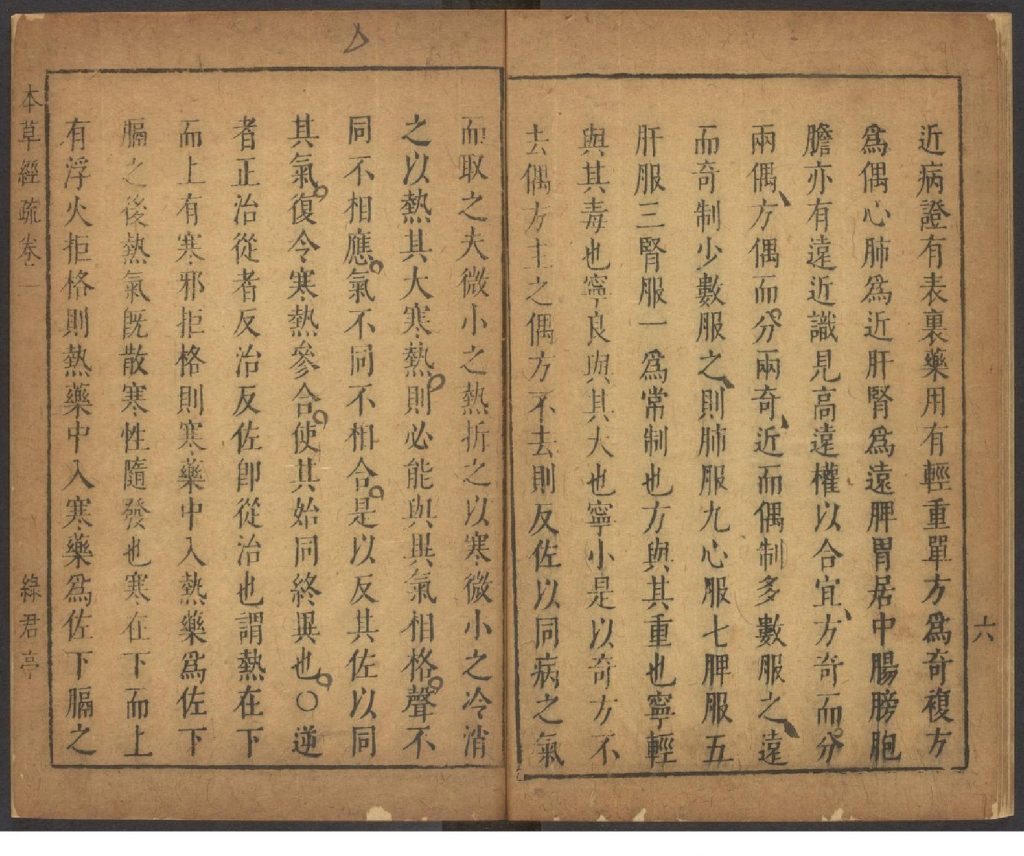 近病證有表裏藥用有輕重單方爲奇複方
爲偶心肺爲近肝腎爲遠脾胃居中腸膀胞
膽亦有遠近識見高遠權以合宜方奇而分
兩偶方偶而分兩奇近而偶制多數服之遠
而奇制少數服之則肺服九心服七脾服五
肝服三腎服一爲常制也方與其重也寧輕
與其毒也寧良與其大也寧小是以奇方不
去偶方主之偶方不去則反佐以同病之氣
六
而取之夫微小之熱折之以寒微小之冷消
之以熱其大寒熱則必能與異氣相格聲不
同不相應氣不同不相合是以反其佐以同
其氣復令寒熱參合使其始同終異也○逆
者正治從者反治反佐卽從治也謂熱在下
而上有寒邪拒格則寒藥中入熱藥爲佐下
膈之後熱氣旣散寒性隨發也寒在下而上
有浮火拒格則熱藥中入寒藥爲佐下膈之
本草經疏卷一
綠君亭